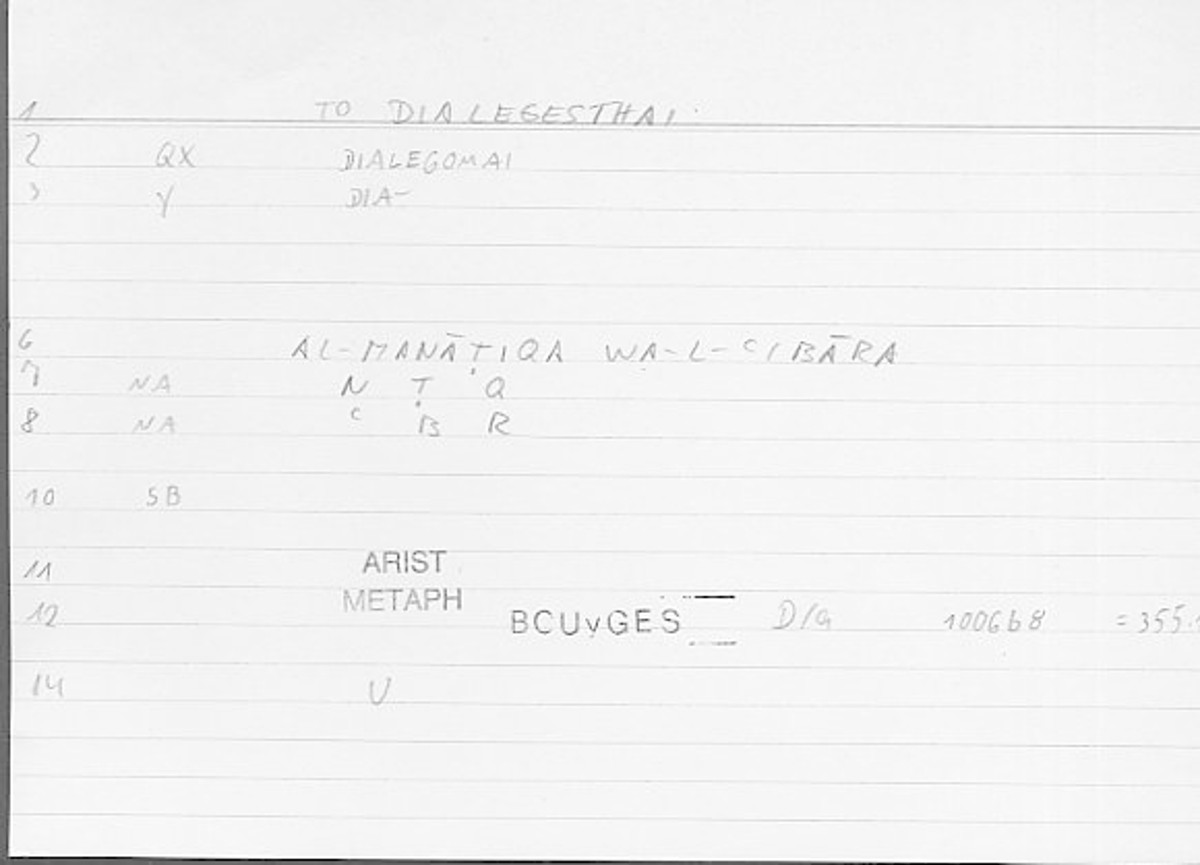 1 TO DIALEGESTHAI
2 QX DIALEGOMAI
3 Y DIA-
6 AL-MANĀṬIQA WA-L-ʿIBĀRA
7 NA N Ṭ Q
8 NA ʿ B R
10 SB
11 ARIST
METAPH
12 BCUvGES D/G 1006b8 =355.
14 U